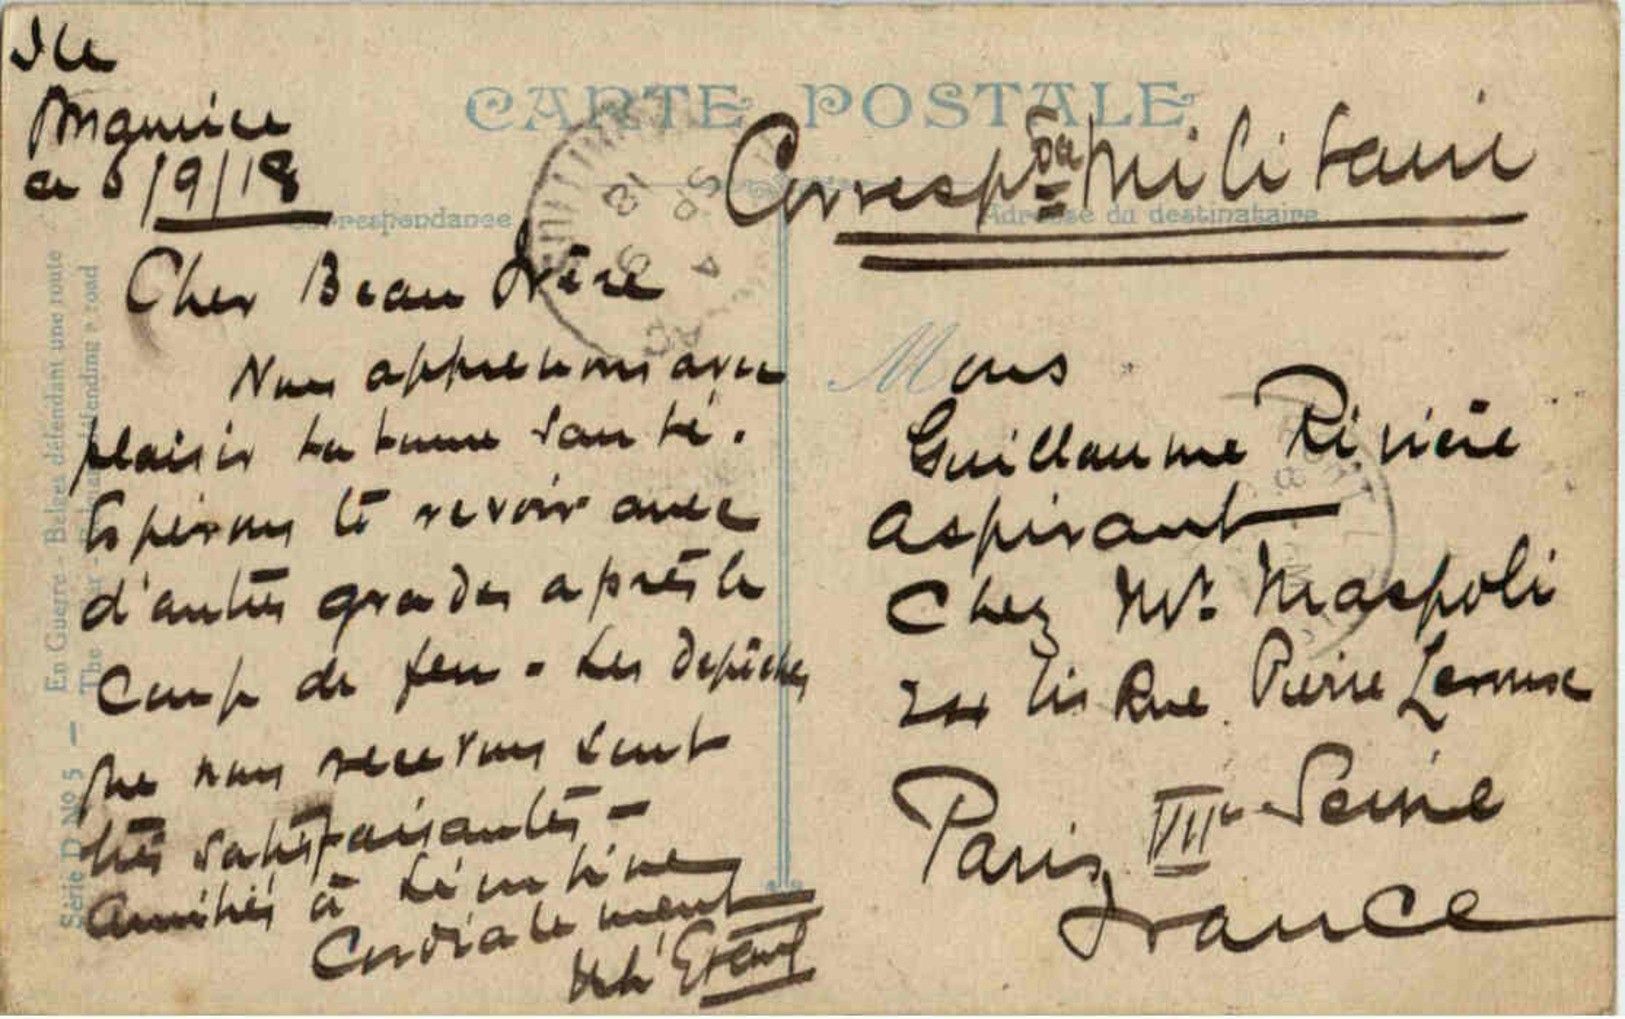 Ile
Maurice
ce 5/9/18
CARTE POSTALE
Corresp^ce Militaire
Correspondance
Adresse du destinataire
Cher Beau Frère
Nous apprenons avec
plaisir ta bonne santé.
Espérons te revoir avec
d'autres grades après le
coup de feu - Les dépêches
que nous recevons sont
très satisfaisantes -
Amitiés à Léontine
Cordialement
Mons
Guillaume Rivière
Aspirant
Chez Mr. Maspoli
bis Rue Pierre Leroux
Paris VII^e Seine
France
Série D Nº 5 — En Guerre - Belges défendant une route
The War - defending a road